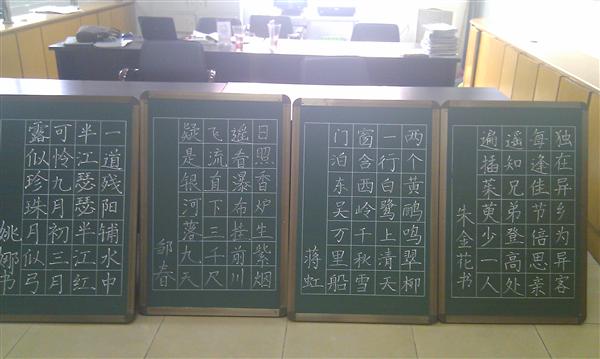 一道残阳铺水中
半江瑟瑟半江红
可怜九月初三月
露似珍珠月似弓
姚娜书
日照香炉生紫烟
遥看瀑布挂前川
飞流直下三千尺
疑是银河落九天
邹春
两个黄鹂鸣翠柳
一行白鹭上清天
窗含西岭千秋雪
门泊东吴万里船
蒋虹
独在异乡为异客
每逢佳节倍思亲
遥知兄弟登高处
遍插茱萸少一人
朱金花书